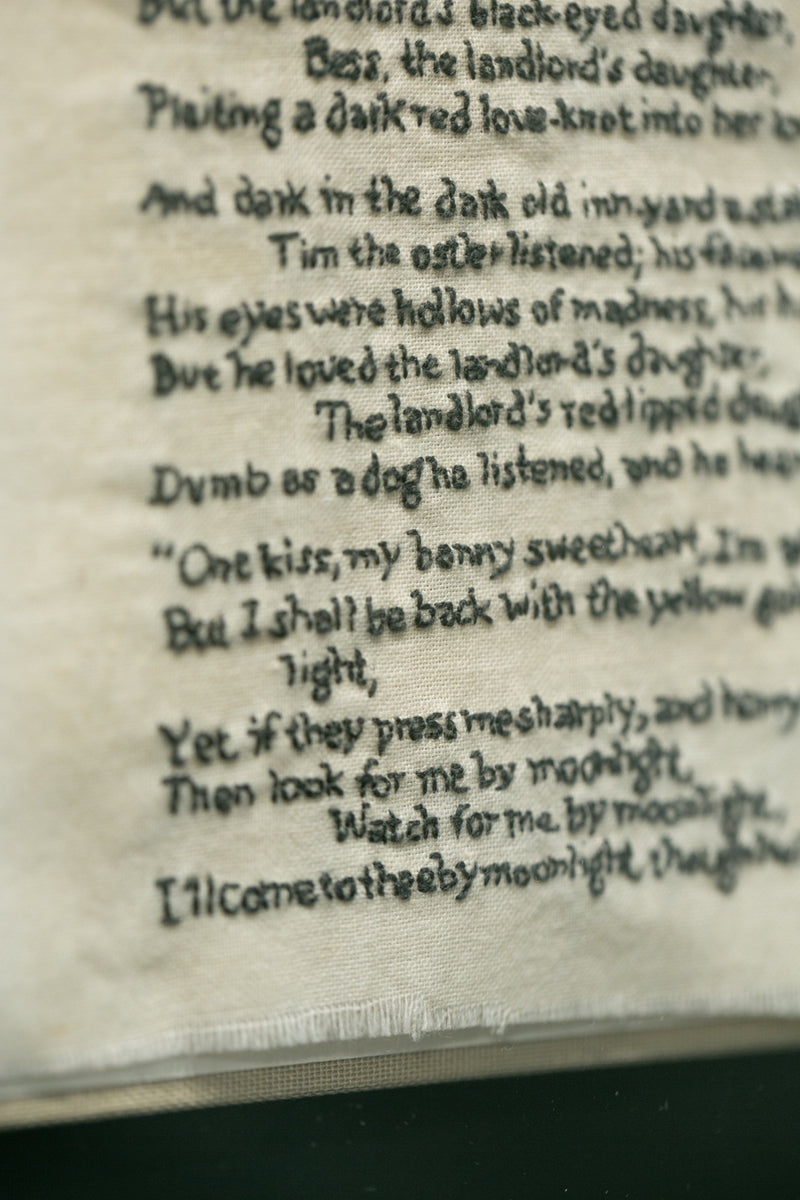 But the landlord's black-eyed daughter,
Bess, the landlord's daughter,
Plaiting a dark red love-knot into her
And dark in the dark old inn-yard a
Tim the ostler listened; his face
His eyes were hollows of madness, his
But he loved the landlord's daughter,
The landlord's red lipped
Dumb as a dog he listened, and he
"One kiss, my bonny sweetheart, I'm
But I shall be back with the yellow
light,
Yet if they press me sharply, and
Then look for me by moonlight,
Watch for me by moonlight,
I'll come to thee by moonlight, though